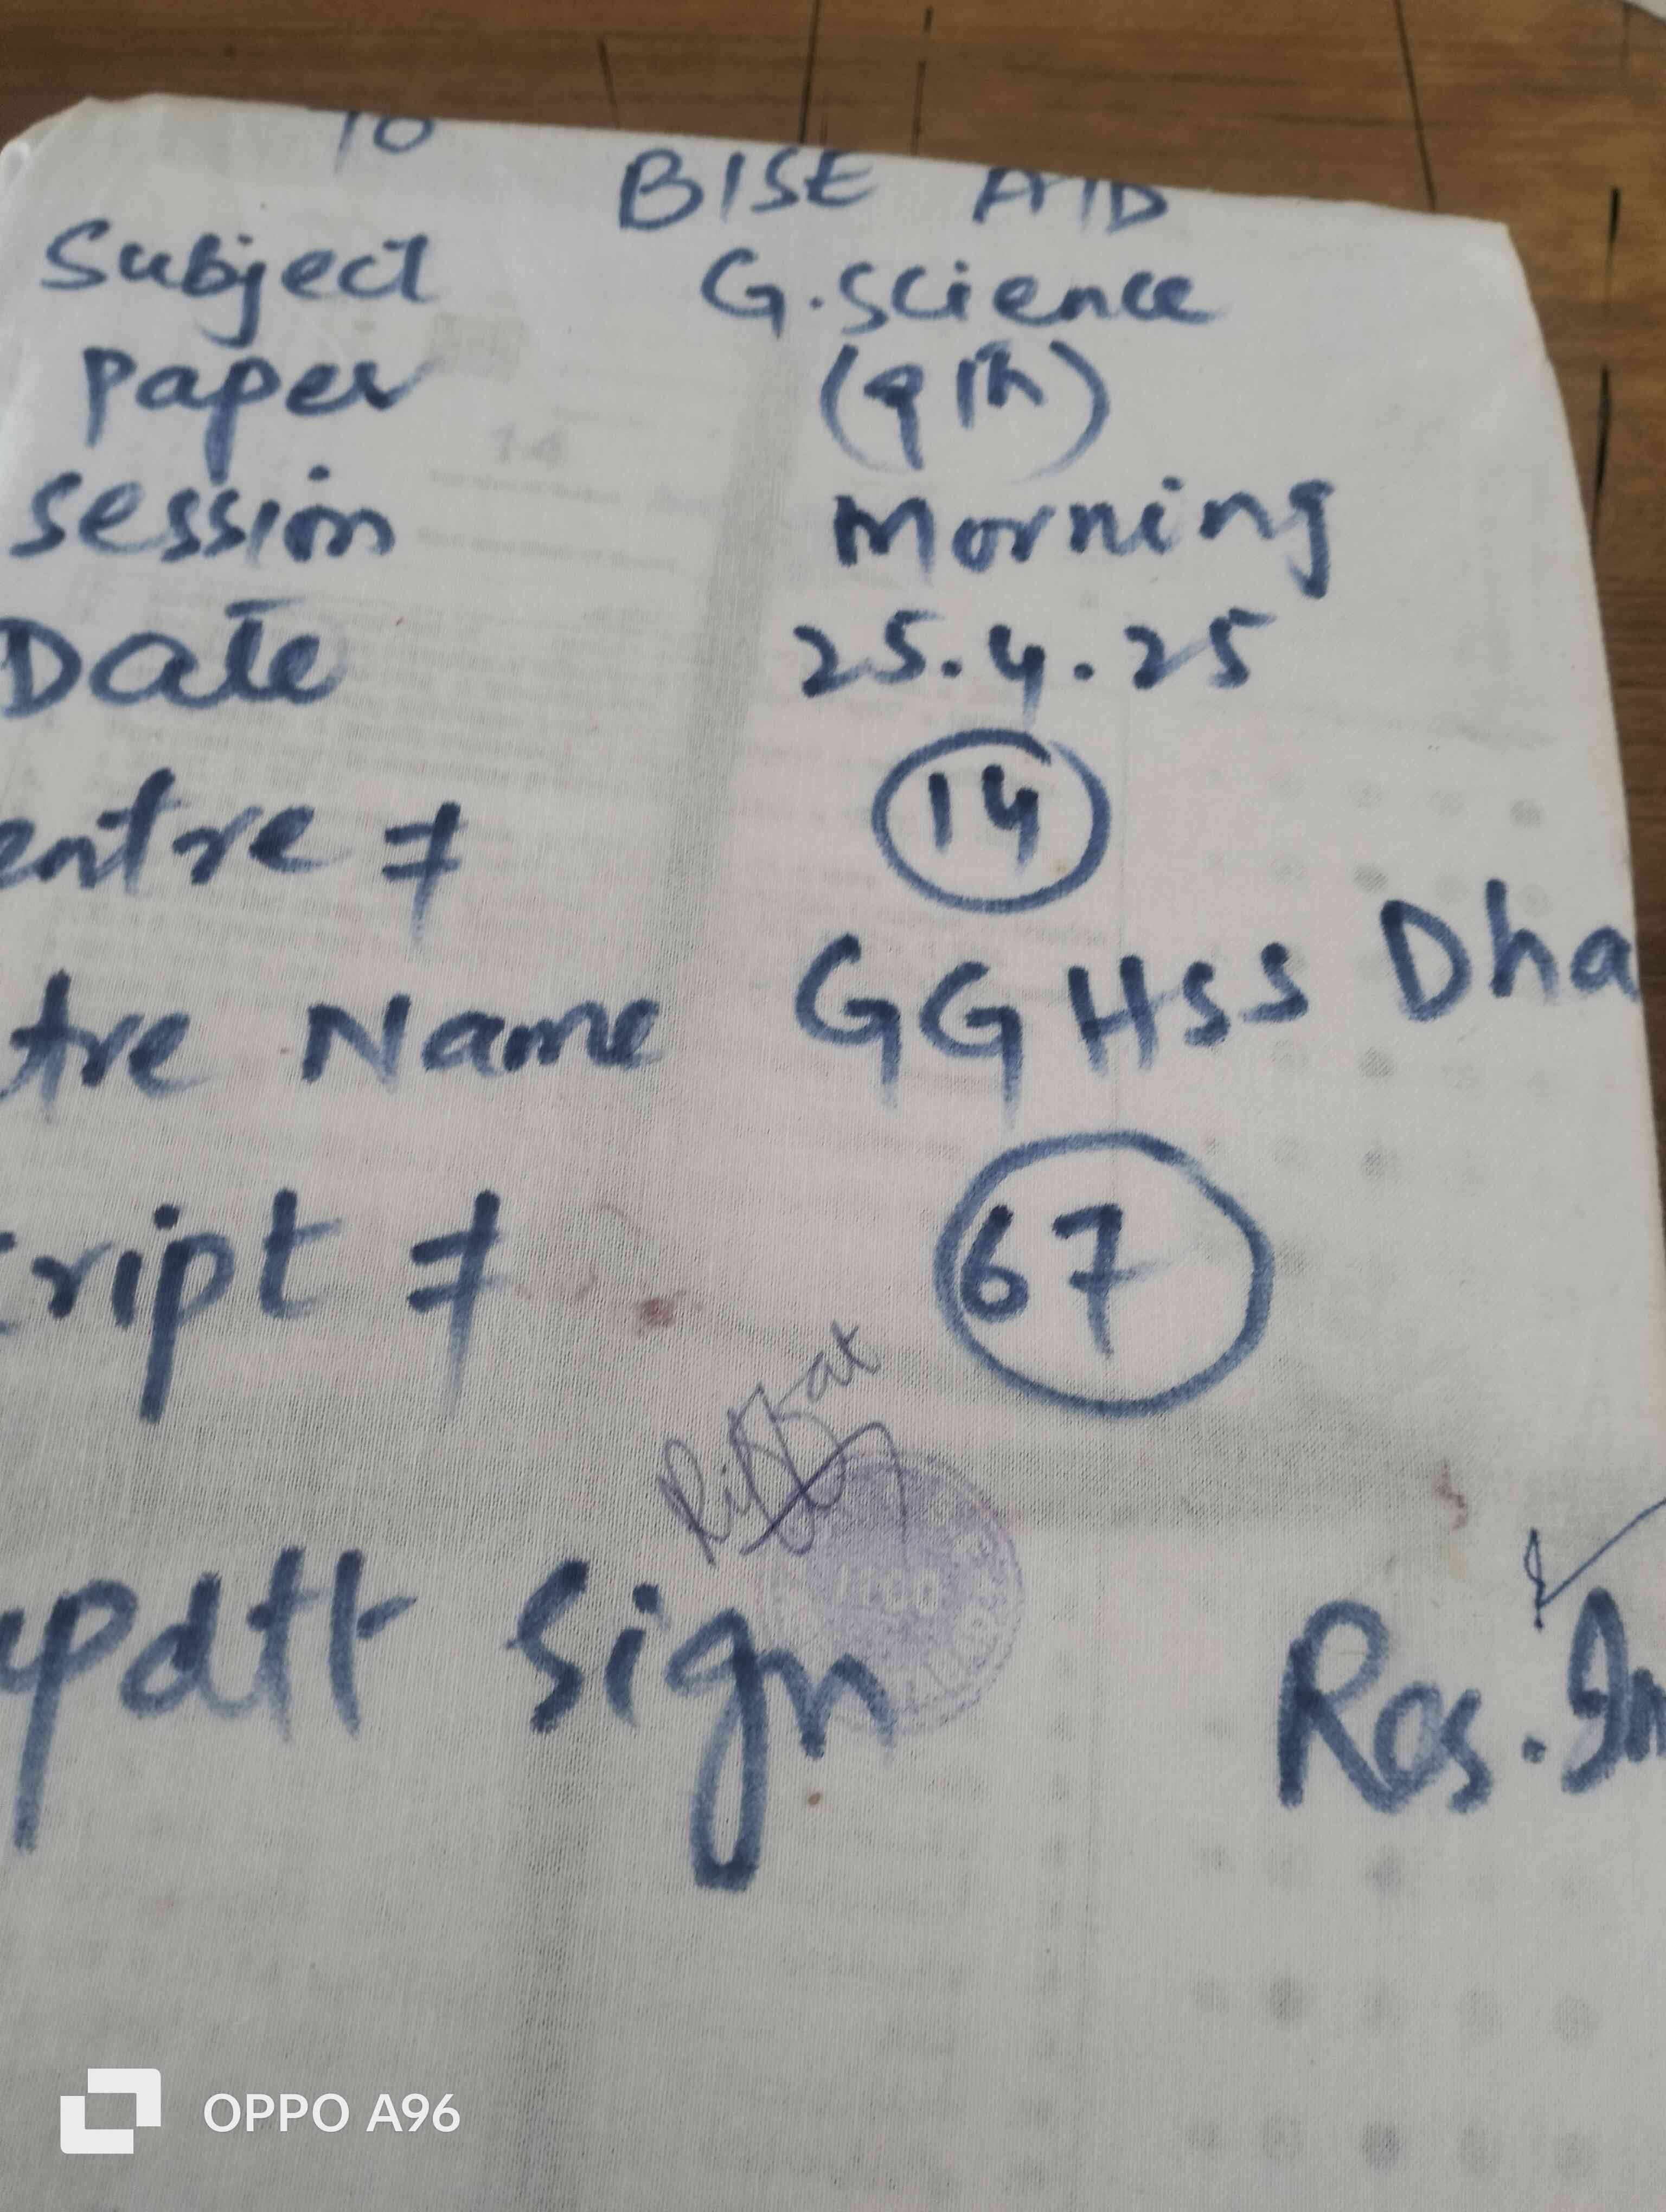 To
BISE ATD
Subject G.Science
Paper (9th)
Session Morning
Date 25.4.25
entre # 14
tre Name GGHSS Dha
cript # 67
Riffat
updtt Sign Res. In
OPPO A96